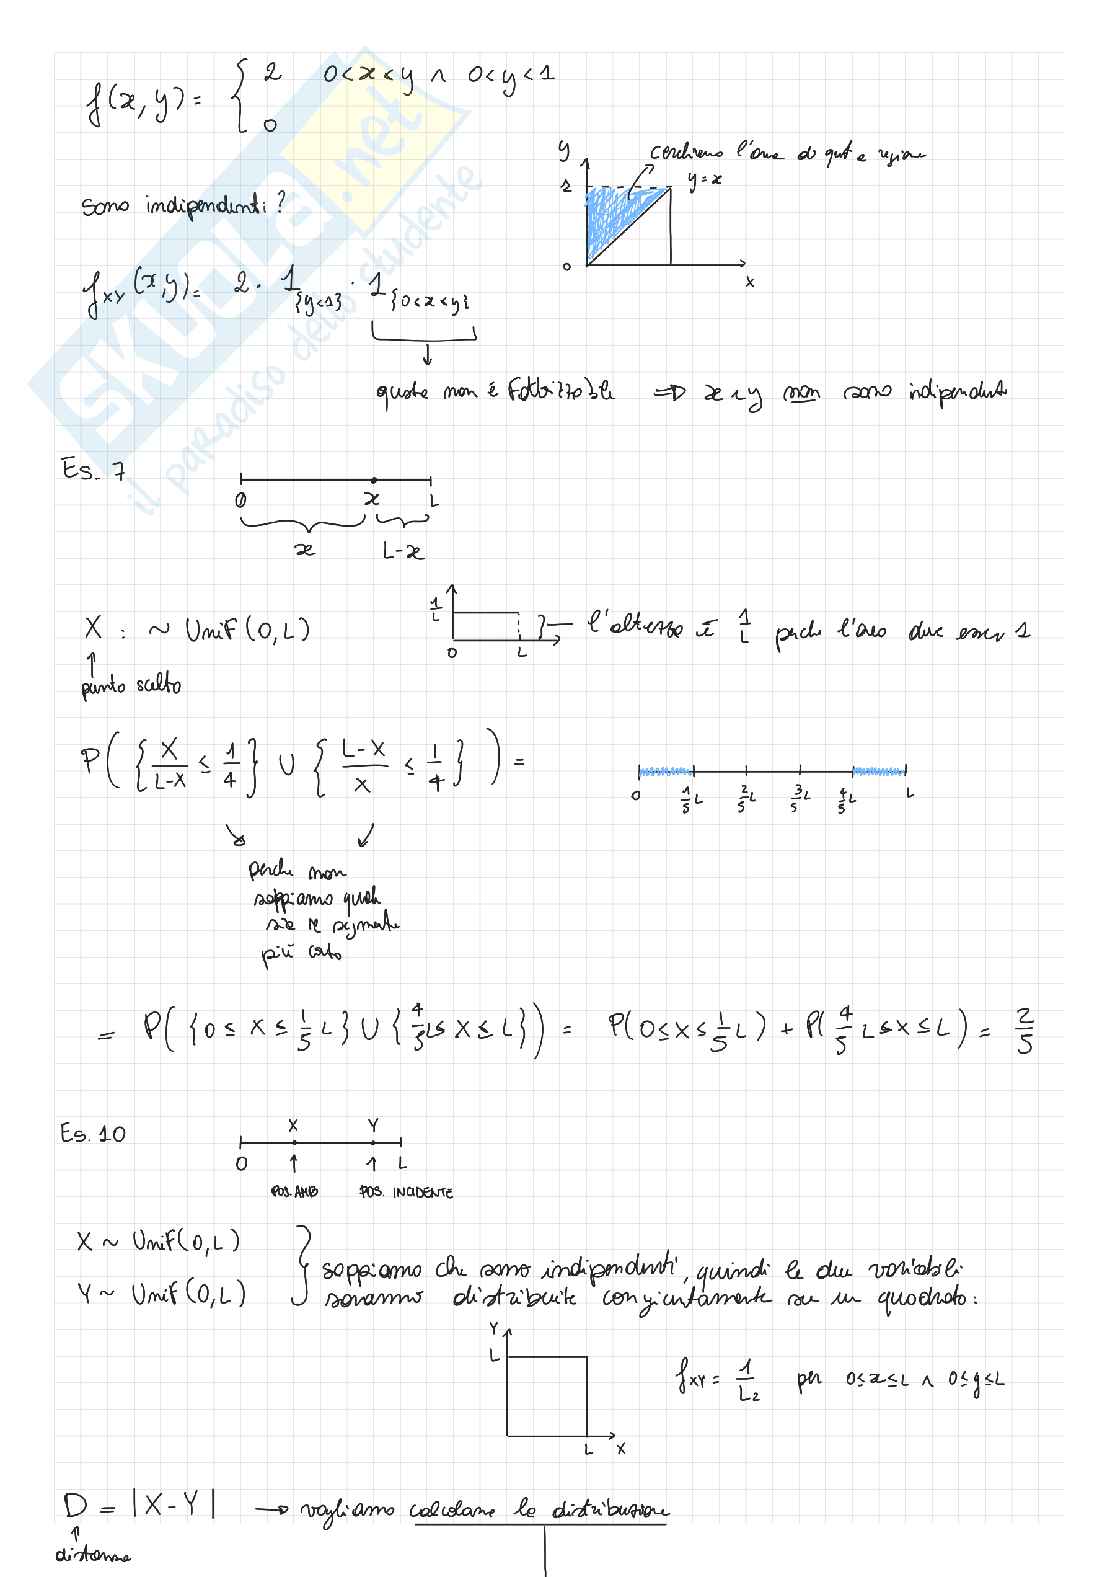 f(x,y) = { 2 0<x<y ∧ 0<y<1
0
y
cerchiamo l'area di questa regione
1
y=x
sono indipendenti?
0
x
f_XY(x,y) = 2 · 1_{y<1} · 1_{0<x<y}
questa non è fattorizzabile ⇒ x e y non sono indipendenti
Es. 7
0 x L
x L-x
X : ~ Unif(0,L)
1/L
0 L
l'altezza è 1/L perche l'area deve essere 1
punto scelto
P({X/(L-X) ≤ 1/4} ∪ {(L-X)/X ≤ 1/4}) =
0 1/5 L 2/5 L 3/5 L 4/5 L L
perche non
sappiamo quale
sia il segmento
più corto
= P({0 ≤ X ≤ 1/5 L} ∪ {4/5 L ≤ X ≤ L}) = P(0≤X≤1/5 L) + P(4/5 L ≤ X ≤ L) = 2/5
Es. 10
X Y
0 L
POS. AMB POS. INCIDENTE
X ~ Unif(0,L)
Y ~ Unif(0,L)
sappiamo che sono indipendenti, quindi le due variabili
saranno distribuite congiuntamente su un quadrato:
Y
L
f_XY = 1/L2 per 0≤x≤L ∧ 0≤y≤L
L X
D = |X-Y| → vogliamo calcolare la distribuzione
distanza
SKUOLA.net
il paradiso dello studente